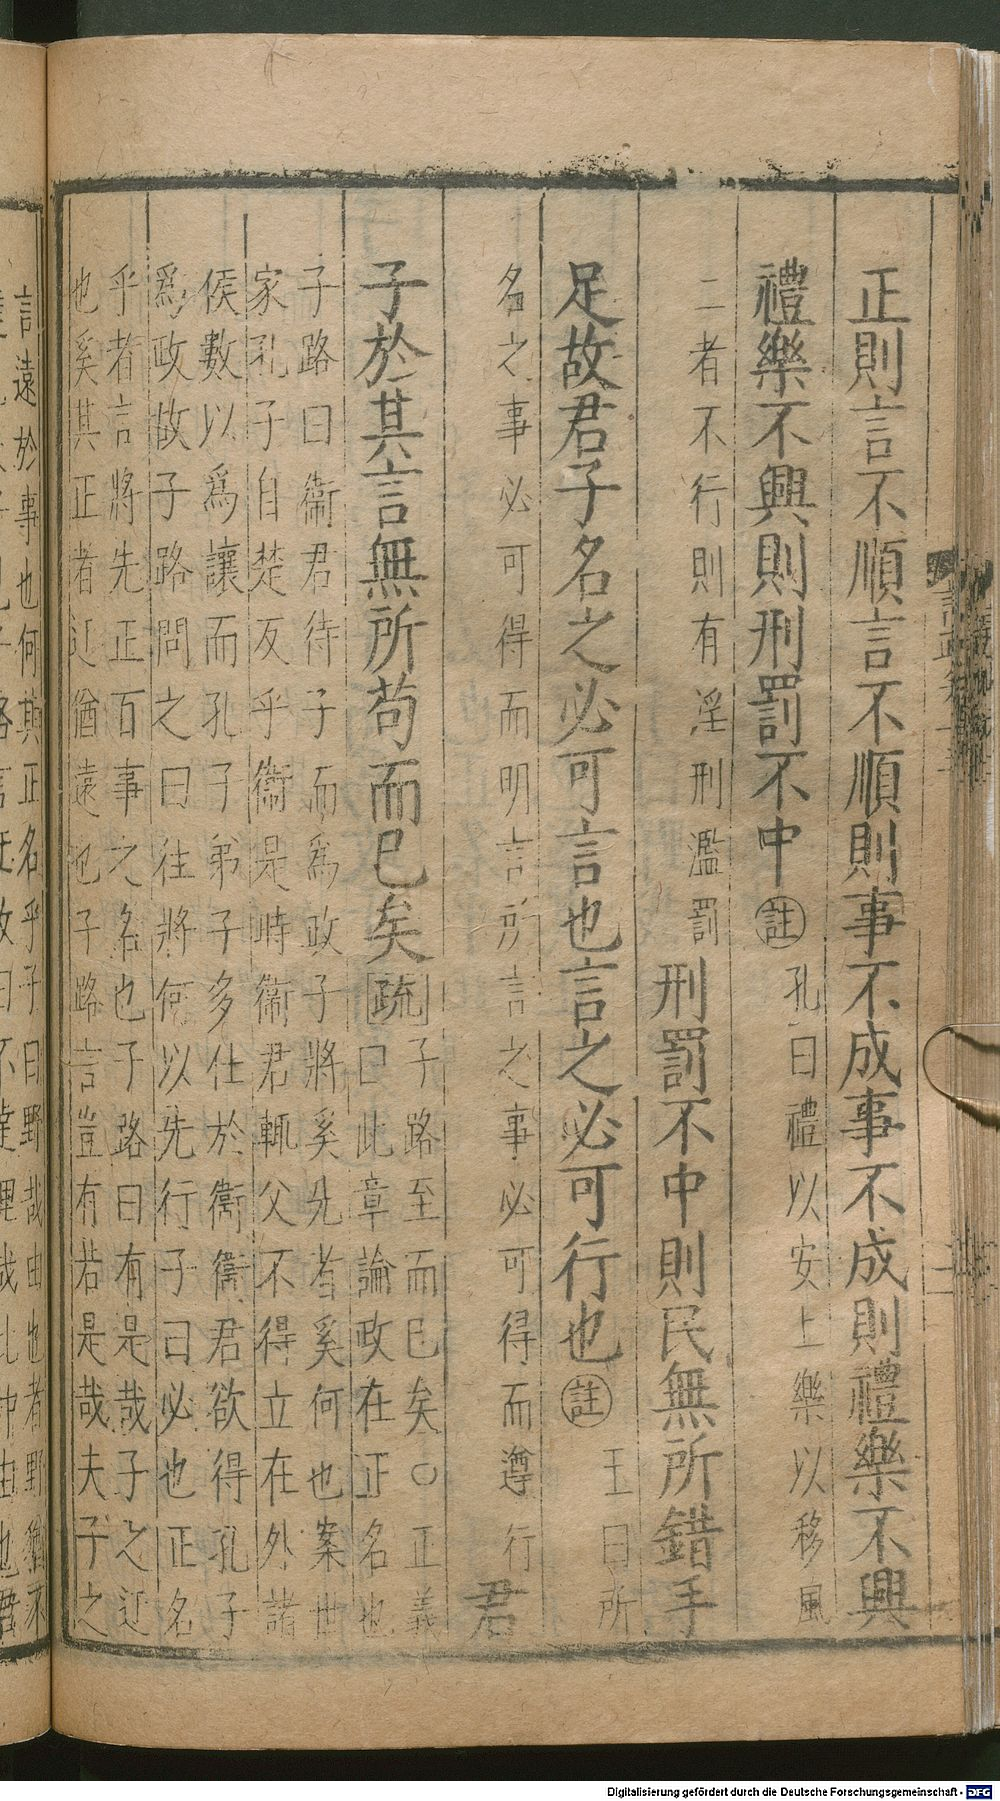 正則言不順言不順則事不成事不成則禮樂不興
禮樂不興則刑罰不中註孔曰禮以安上樂以移風
二者不行則有淫刑濫罰刑罰不中則民無所錯手
足故君子名之必可言也言之必可行也註王曰所
名之事必可得而明言所言之事必可得而遵行君
子於其言無所苟而已矣疏子路至而已矣○正義
曰此章論政在正名也
子路曰衞君待子而爲政子將奚先者奚何也案世
家孔子自楚反乎衞是時衞君輒父不得立在外諸
侯數以爲讓而孔子弟子多仕於衞衞君欲得孔子
爲政故子路問之曰往將何以先行子曰必也正名
乎者言將先正百事之名也子路曰有是哉子之迂
也奚其正者迂猶遠也子路言豈有若是哉夫子之
言遠於事也何其正名乎子曰野哉由也者野猶不
Digitalisierung gefördert durch die Deutsche Forschungsgemeinschaft - DFG